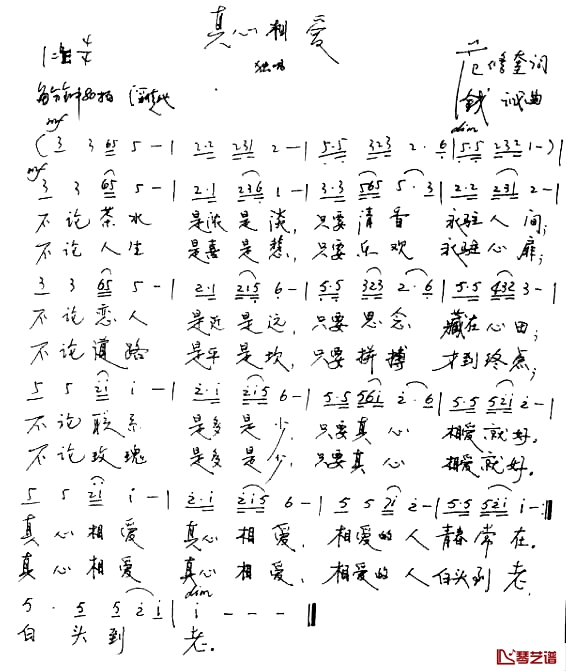 真心相爱
独唱
1=♭B 4/4
范修奎词
钱诚曲
每分钟 拍
mf dim
( 3 3 65 5 - | 2·2 231 2 - | 5·5 323 2· 6 | 5·5 232 1 - ) |
mf
3 3 65 5 - | 2·1 236 1 - | 3·3 565 5·3 | 2·2 231 2 - |
不论茶水 是浓是淡,只要清香 永驻人间;
不论人生 是喜是愁,只要乐观 永驻心扉;
3 3 65 5 - | 2·1 215 6 - | 5·5 323 2·6 | 5·5 432 3 - |
不论恋人 是近是远,只要思念 藏在心田;
不论道路 是平是坎,只要拼搏 才到终点;
5 5 2i i - | 2·i 2i5 6 - | 5·5 56i 2·6 | 5·5 52i 2 - |
不论联系 是多是少,只要真心 相爱就好。
不论玫瑰 是多是少,只要真心 相爱就好。
5 5 2i i - | 2·i 2i5 6 - | 5 5 2i 2 - | 5·5 52i i - :||
真心相爱 真心相爱,相爱的人青春常在。
真心相爱 真心相爱,相爱的人白头到老,
dim
5 · 5 5 2 i | i - - - ||
白头到 老。
琴艺谱